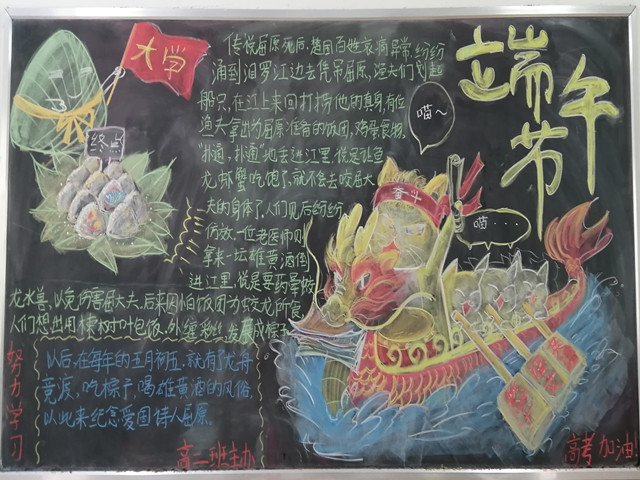 端午节
大学
终点
传说屈原死后,楚国百姓哀痛异常,纷纷
涌到汨罗江边去凭吊屈原,渔夫们划起
船只,在江上来回打捞他的真身有位
渔夫拿出为屈原准备的饭团,鸡蛋食物,
"扑通,扑通"地丢进江里,说是让鱼
龙虾蟹吃饱了,就不会去咬屈大
夫的身体了,人们见后纷纷
仿效。一位老医师则
拿来一坛雄黄酒倒
进江里,说是要药晕蛟
龙水兽,以免伤害屈大夫,后来因怕饭团为蛟龙所食,
人们想出用楝树叶包饭,外缠彩丝,发展成粽子
以后,在每年的五月初五,就有了龙舟
竞渡,吃粽子,喝雄黄酒的风俗,
以此来纪念爱国诗人屈原。
努力学习
高二班主办
喵~
奋斗
喵...
高考加油!